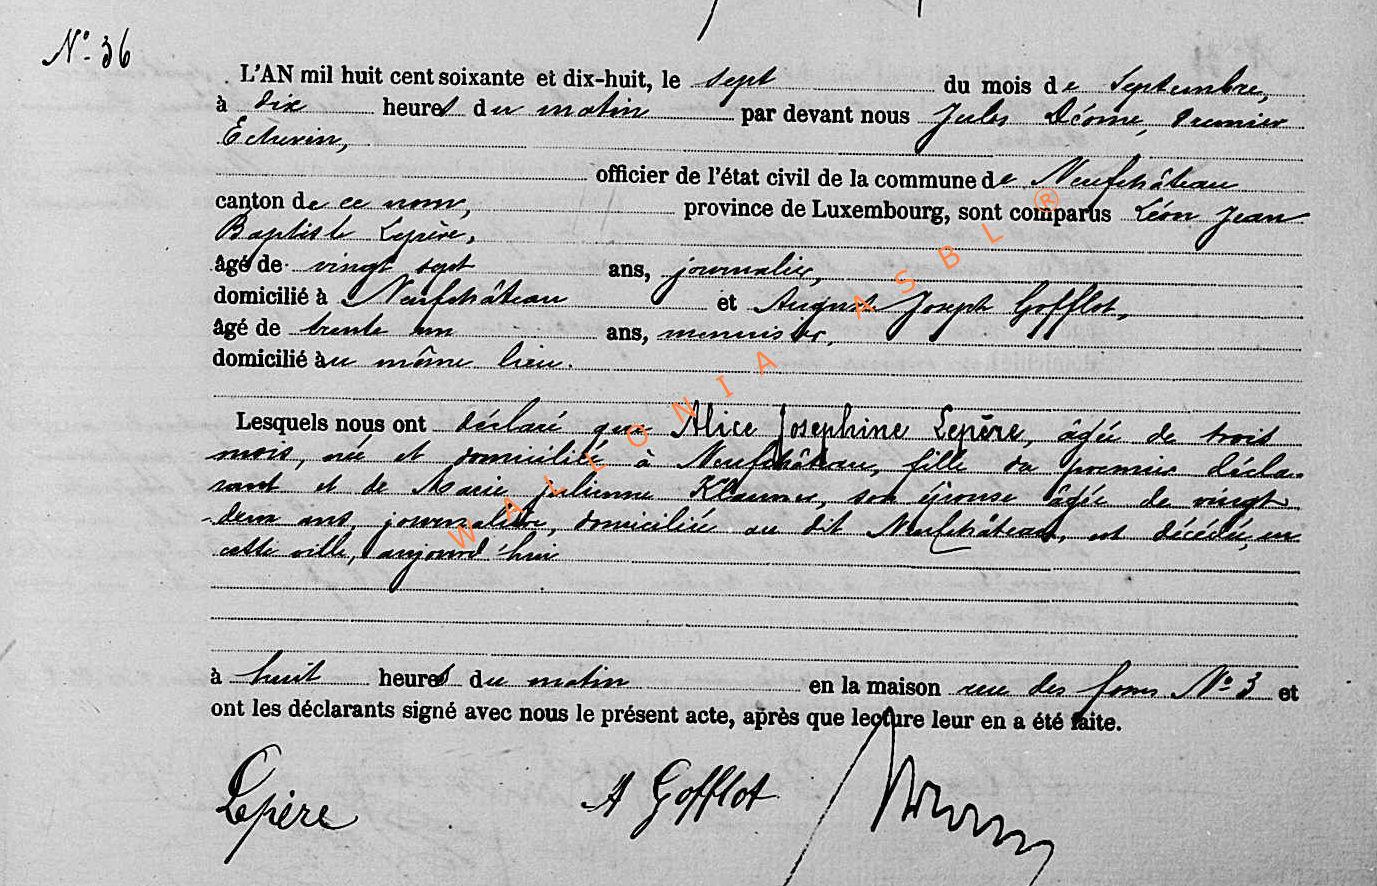 N° 36
L'AN mil huit cent soixante et dix-huit, le sept du mois de Septembre,
à dix heures du matin par devant nous Jules Déome, Premier
Echevin,
officier de l'état civil de la commune de Neufchâteau
canton de ce nom, province de Luxembourg, sont comparus Léon Jean
Baptiste Lepère,
âgé de vingt sept ans, journalier,
domicilié à Neufchâteau et August Joseph Gofflot,
âgé de trente un ans, menuisier,
domicilié au même lieu.
Lesquels nous ont déclaré que Alice Josephine Lepère, âgée de trois
mois, née et domiciliée à Neufchâteau, fille du premier décla-
rant et de Marie Julienne son épouse âgée de vingt
deux ans, journalière, domiciliée au dit Neufchâteau, est décédée, en
cette ville, aujourd'hui
à huit heures du matin en la maison rue des fours N° 3 et
ont les déclarants signé avec nous le présent acte, après que lecture leur en a été faite.
Lepère A Gofflot
WALLONIA ASBL ®